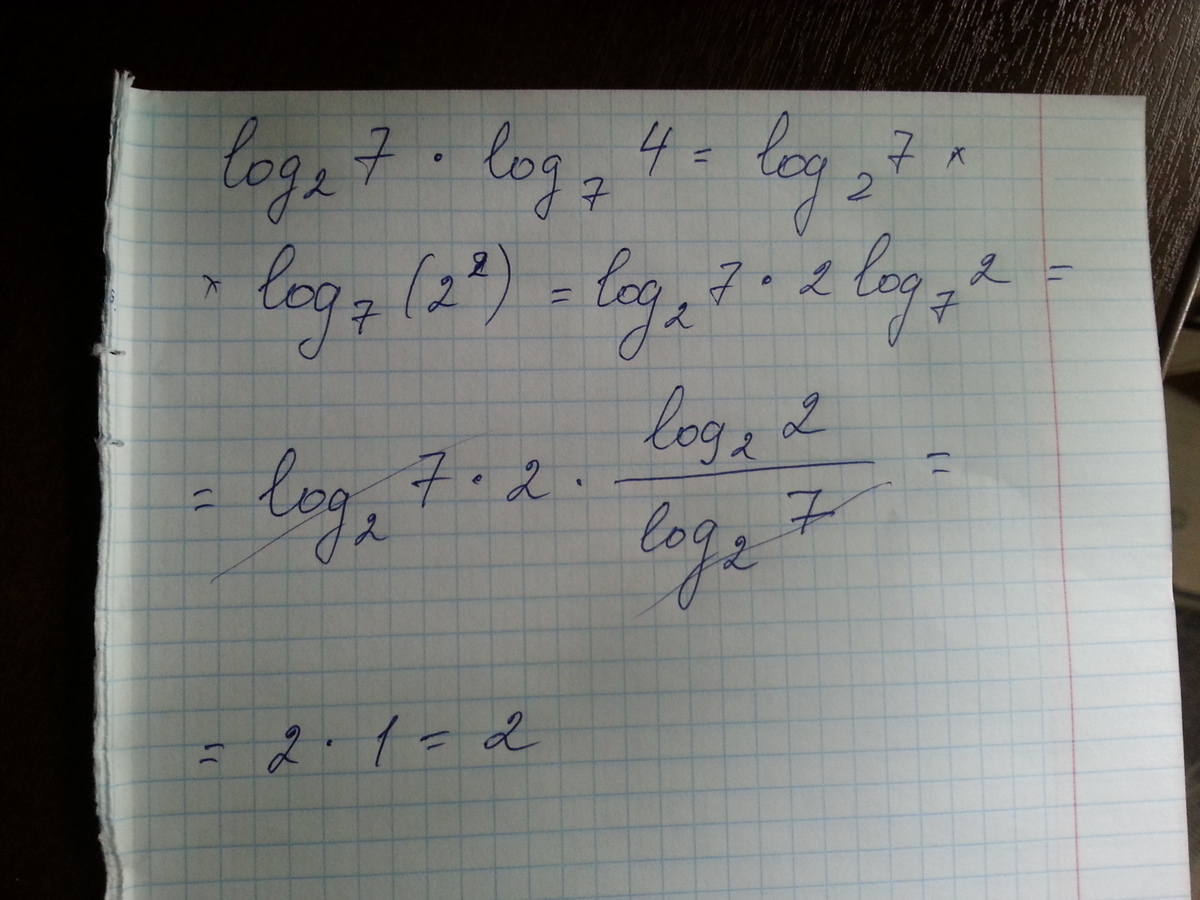 log₂ 7 · log₇ 4 = log₂ 7 ×
× log₇ (2²) = log₂ 7 · 2 log₇ 2 =
= log₂ 7 · 2 · log₂ 2 / log₂ 7 =
= 2 · 1 = 2